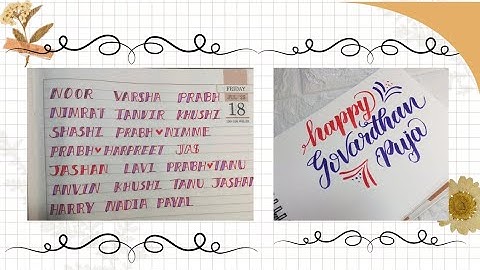 NOOR VARSHA PRABH
NIMRAT TANVIR KHUSHI
SHASHI PRABH♥NIMME
PRABH♥HARPREET JAS
JASHAN LAVI PRABH♥TANU
TANVIR KHUSHI TANU JASHAN
HARRY NADIA PAYAL
FRIDAY
18
happy
Govardhan
Puja